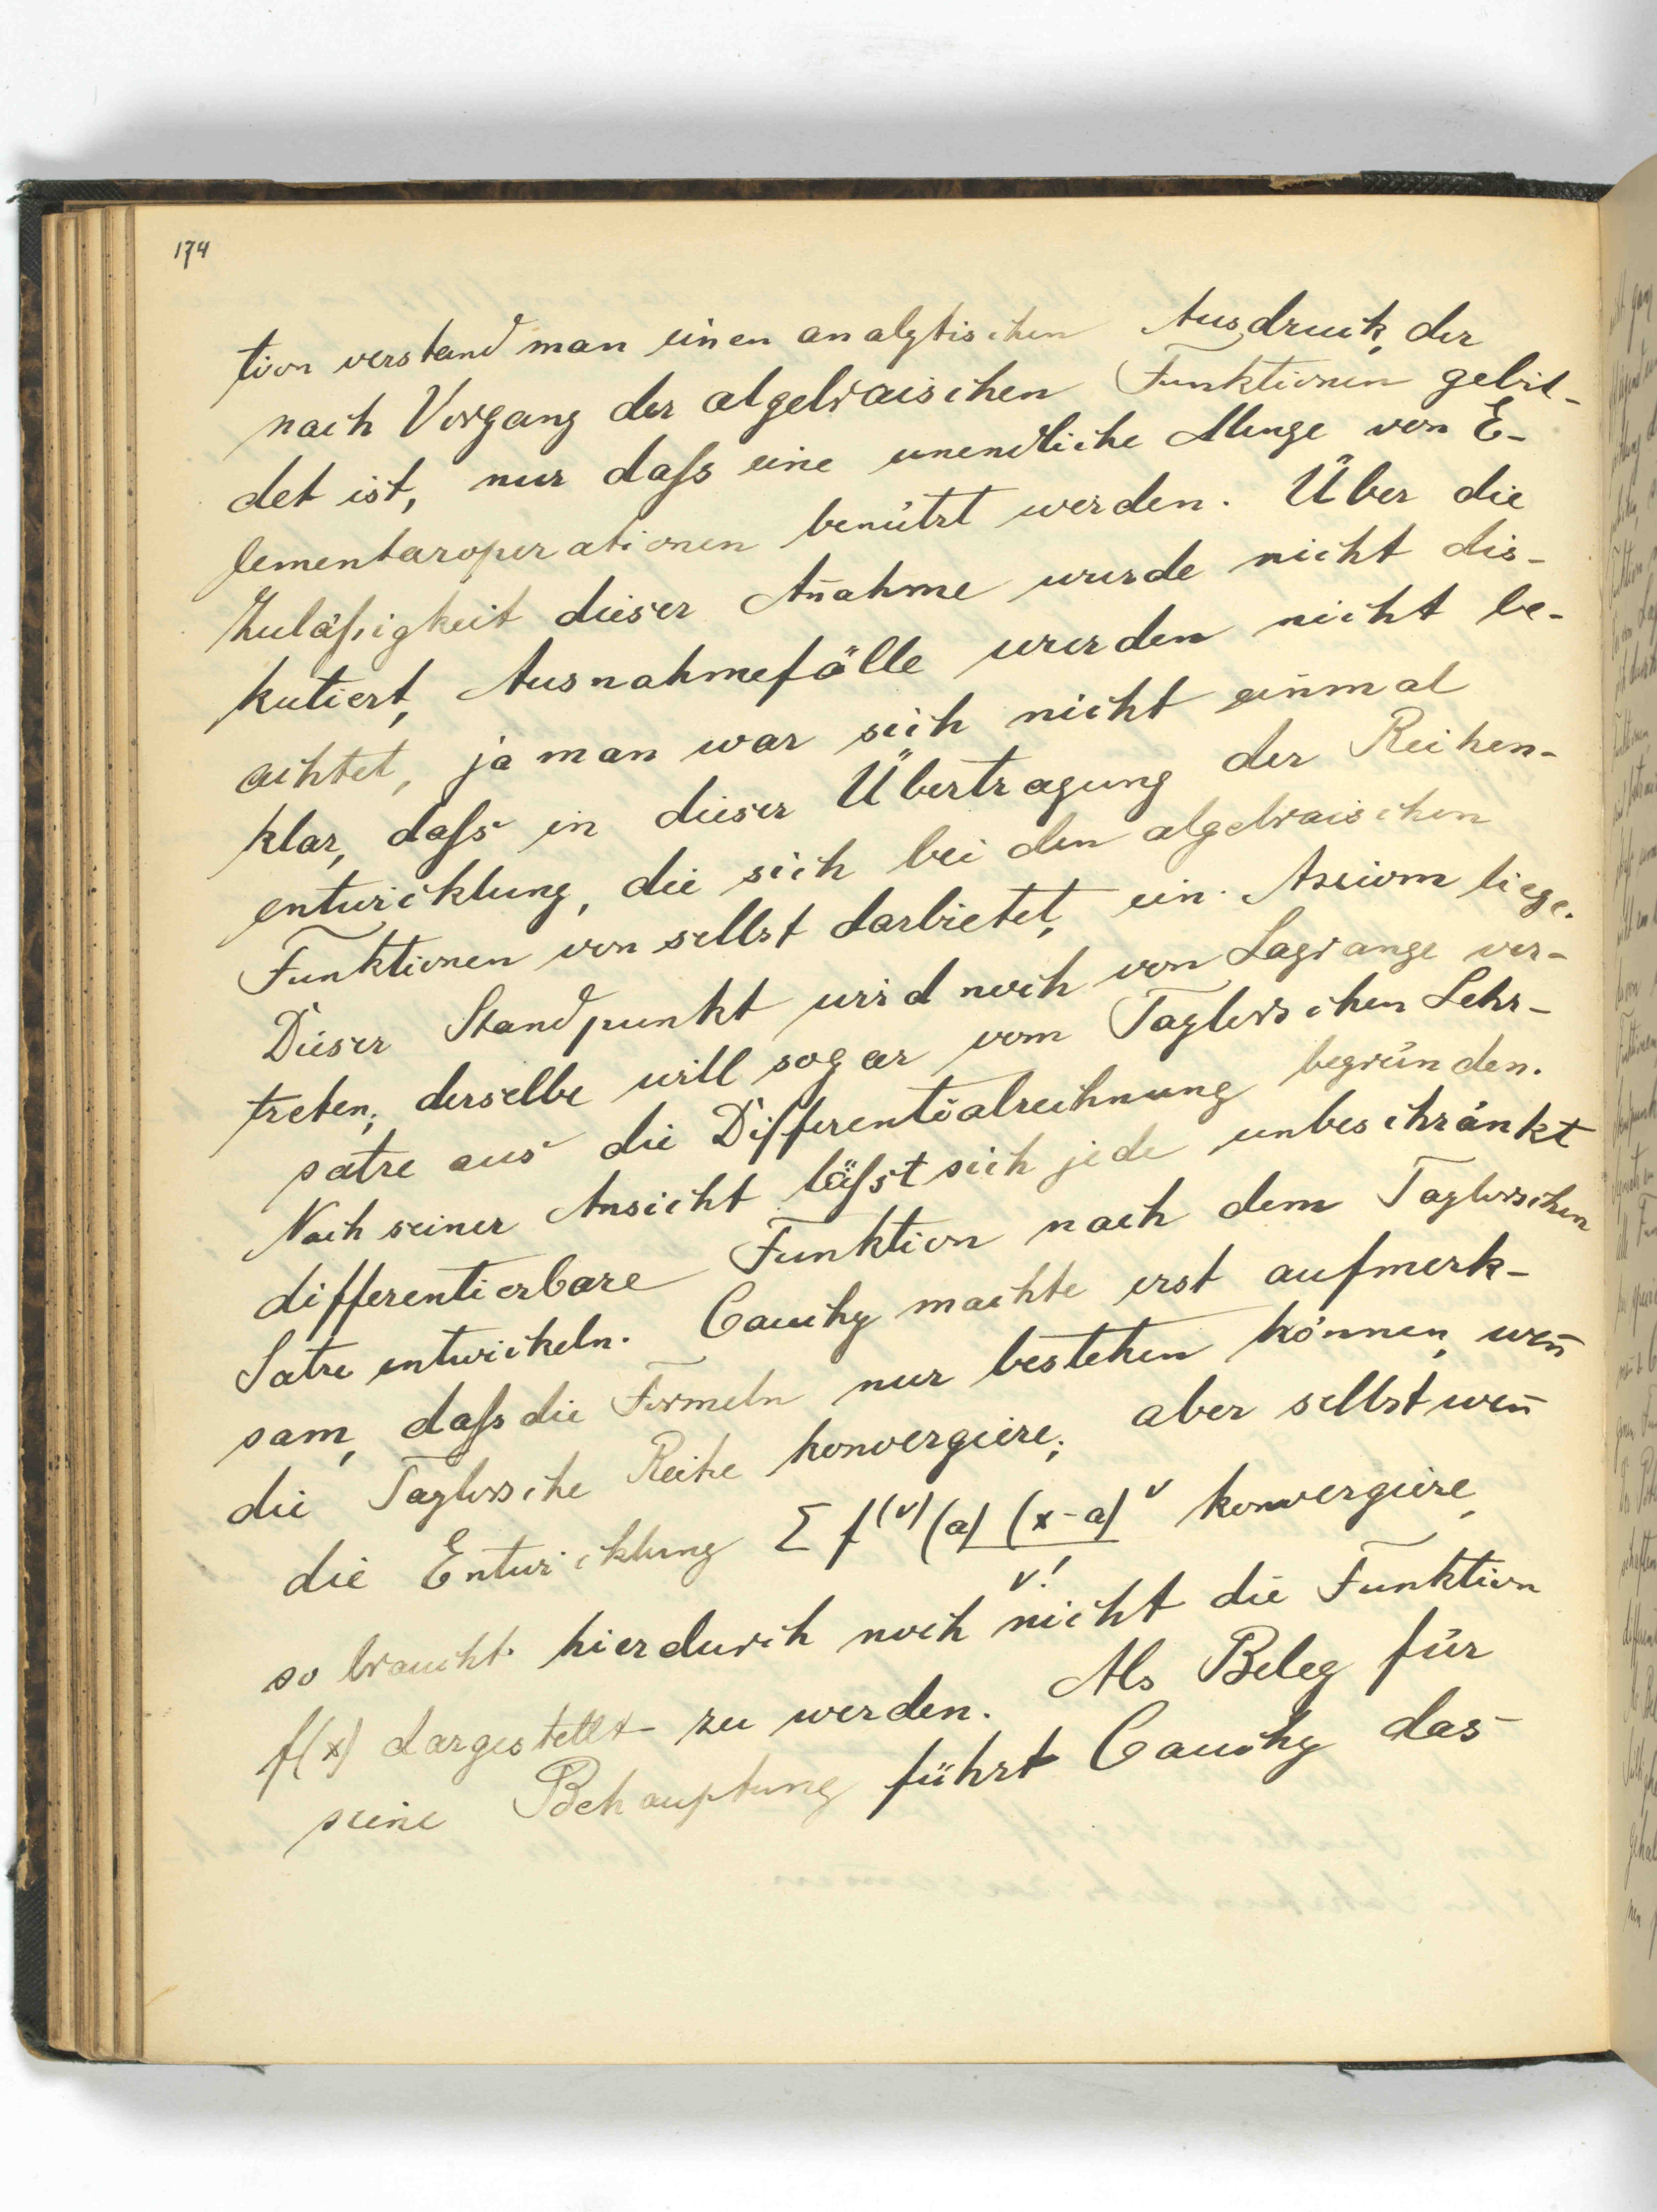 174
tion verstand man einen analytischen Ausdruck, der
nach Vorgang der algebraischen Funktionen gebil-
det ist, nur daſs eine unendliche Menge von E-
lementaroperationen benützt werden. Über die
Zuläſsigkeit dieser An̄ahme wurde nicht dis-
kutiert, Ausnahmefälle wurden nicht be-
achtet, ja man war sich nicht einmal
klar, daſs in dieser Übertragung der Reihen-
entwicklung, die sich bei den algebraischen
Funktionen von selbst darbietet, ein Axiom liege.
Dieser Standpunkt wird noch von Lagrange ver-
treten; derselbe will sogar vom Taylorschen Lehr-
satze aus die Differentialrechnung begründen.
Nach seiner Ansicht läſst sich jede unbeschränkt
differentierbare Funktion nach dem Taylorschen
Satze entwickeln. Cauchy machte erst aufmerk-
sam, daſs die Formeln nur bestehen können, wen̄
die Taylorsche Reihe konvergiere; aber selbst wen̄
die Entwicklung Σ f⁽ᵛ⁾(a) (x-a)ᵛ/ν! konvergiere,
so braucht hierdurch noch nicht die Funktion
f(x) dargestellt zu werden. Als Beleg für
seine Behauptung führt Cauchy das